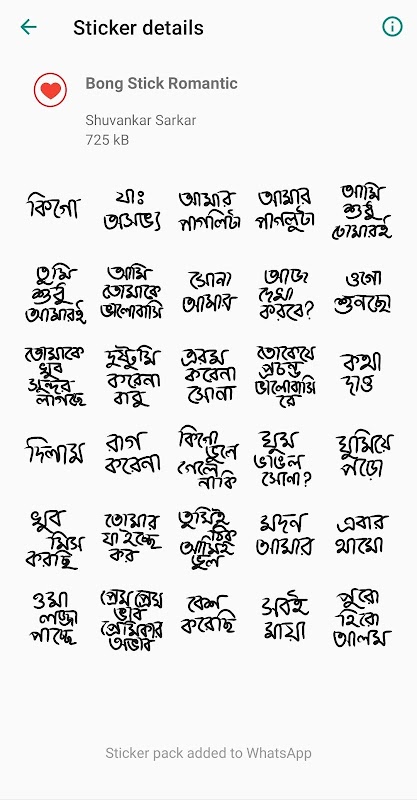 Sticker details
Bong Stick Romantic
Shuvankar Sarkar
725 kB
কিগো
যাঃ
অসভ্য
আমার
পাগলিটা
আমার
পাগলুটা
আমি
শুধু
তোমারই
তুমি
শুধু
আমারই
আমি
তোমাকে
ভালোবাসি
সোনা
আমার
আজ
দেখা
করবে?
ওগো
শুনছো
তোমাকে
খুব
সুন্দর
লাগছে
দুষ্টুমি
করেনা
বাবু
এরম
করেনা
সোনা
প্রচন্ড
ভালোবাসি
রে
কথা
দাও
দিলাম
রাগ
করেনা
কিগো
ভুলে
গেলে
নাকি
ঘুম
ভাঙল
সোনা?
ঘুমিয়ে
পড়ো
খুব
মিস
করছি
তোমার
যা ইচ্ছে
কর
তুমিই
ঠিক
আমিই
ভুল
মদন
আমার
এবার
থামো
ওমা
লজ্জা
পাচ্ছে
প্রেম প্রেম
ভাব
প্রেমিকার
অভাব
বেশ
করেছি
সবই
মায়া
পুরো
হিরো
আলম
Sticker pack added to WhatsApp